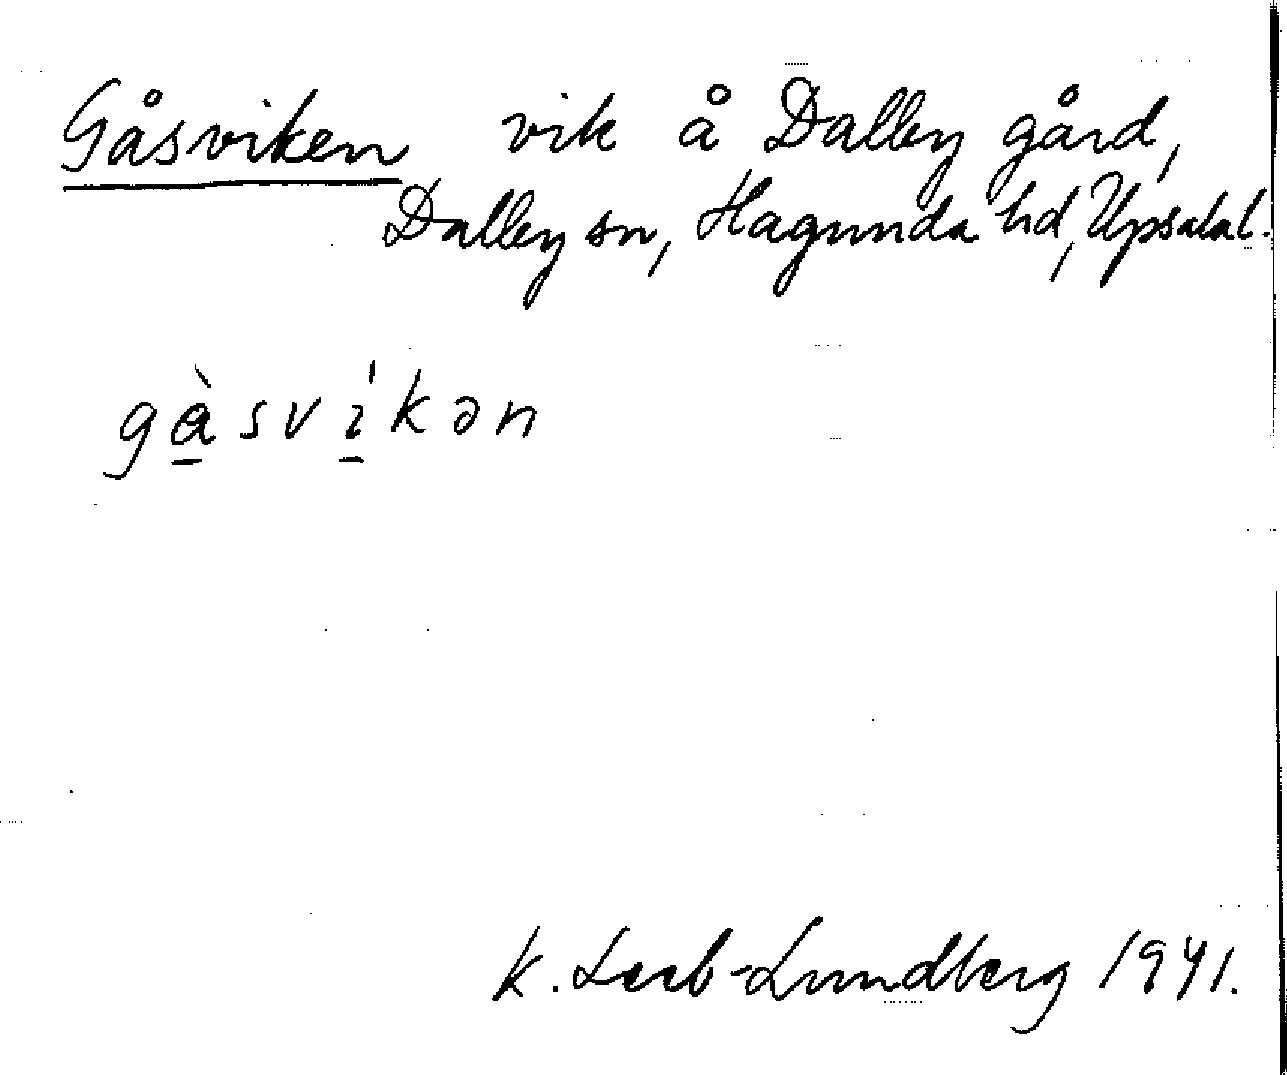 Gåsviken vik å Dalby gård,
Dalby sn, Hagunda hd, Upsala l.
gàsvíkən
K. Leeb-Lundberg 1941.